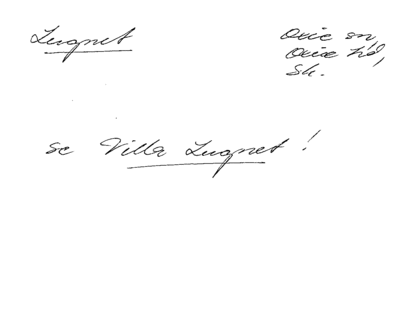 Lugnet
Ovie sn,
Ovie hd,
Sk.
se Villa Lugnet!